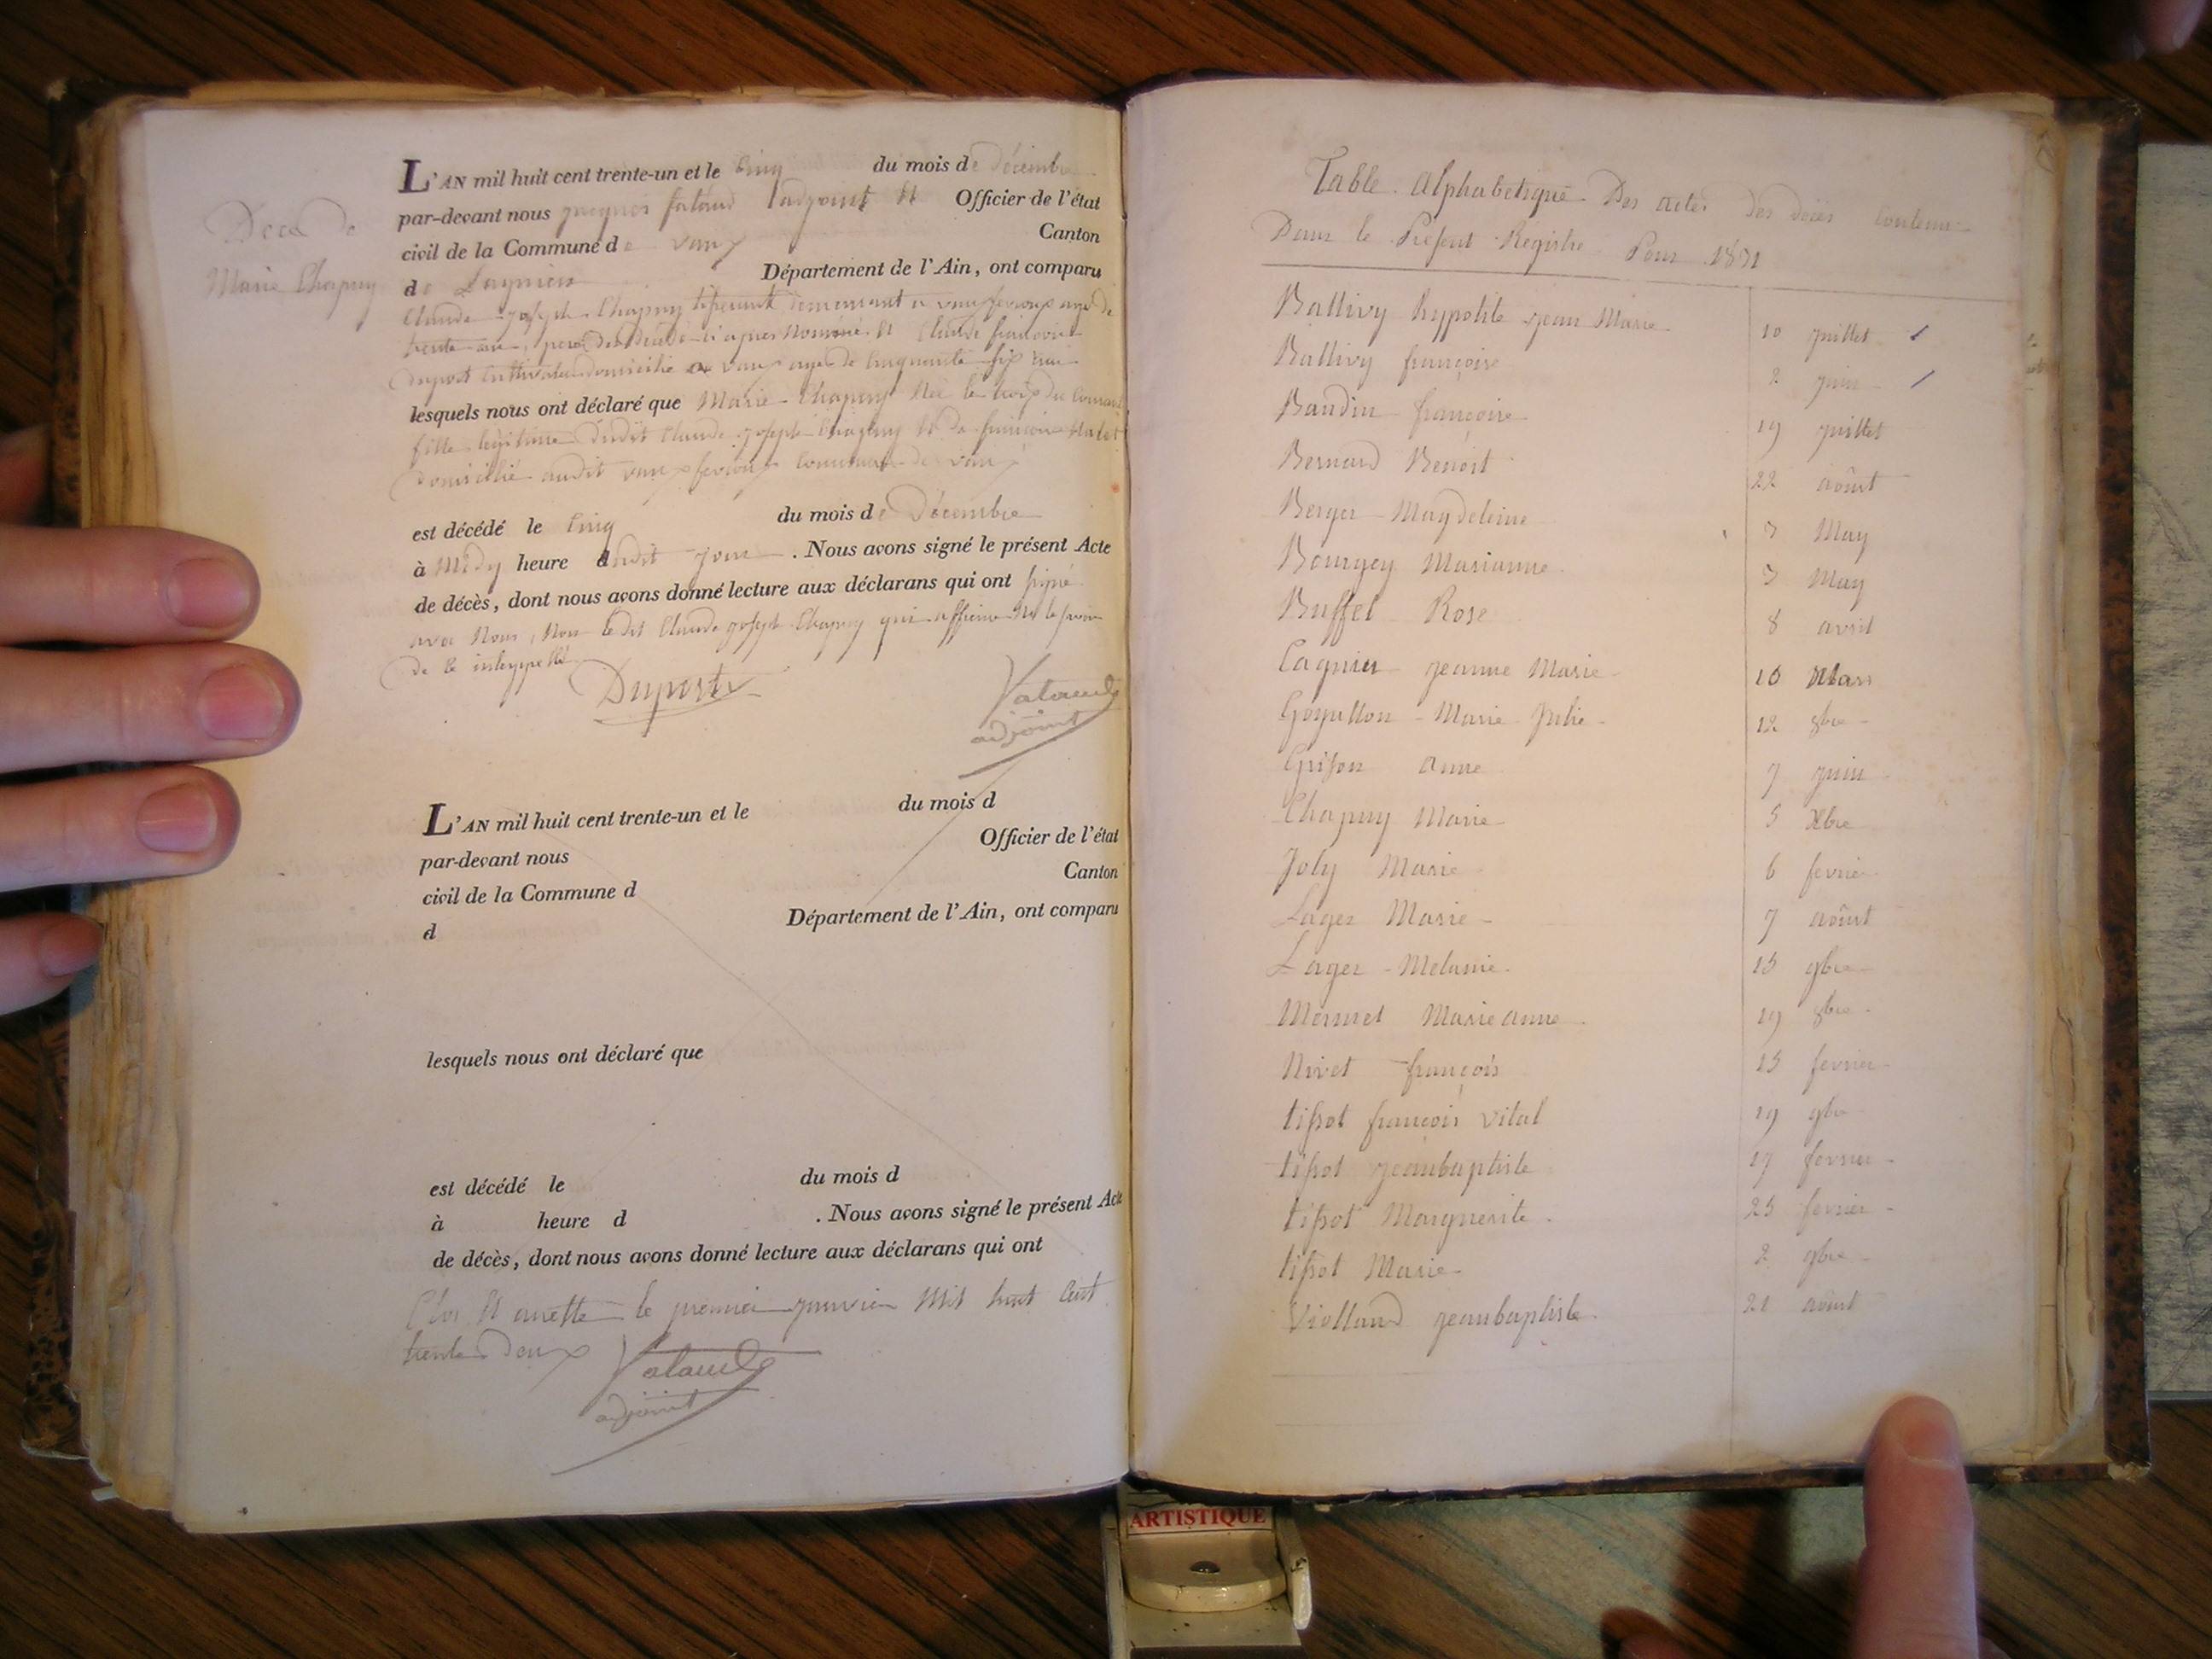 Décès de
Marie Chapuy
L'AN mil huit cent trente-un et le cinq du mois de décembre
par-devant nous jacques falaud l'adjoint et Officier de l'état
civil de la Commune de vaux Canton
de Lagnieu Département de l'Ain, ont comparu
Claude joseph Chapuy demeurant a vaux fevroux agé de
trente ans, pere de ci apres Nommé. Et Claude francois
dupont Cultivateur domicilié a vaux agé de Cinquante six
lesquels nous ont déclaré que Marie Chapuy Née le trois du Courant
fille legitime dudit Claude joseph Chapuy Et de francoise
domicilié audit vaux fevroux Commune de vaux
est décédé le Cinq du mois de Décembre
à Midy heure dudit jour . Nous avons signé le présent Acte
de décès, dont nous avons donné lecture aux déclarans qui ont signé
avec Nous, Non ledit Claude joseph Chapuy qui affirme Ne le savoir
de ce
Duport
Valaud
adjoint
L'AN mil huit cent trente-un et le du mois d
par-devant nous Officier de l'état
civil de la Commune d Canton
d Département de l'Ain, ont comparu
lesquels nous ont déclaré que
est décédé le du mois d
à heure d . Nous avons signé le présent Acte
de décès, dont nous avons donné lecture aux déclarans qui ont
Clos Et arretté le premier janvier Mil huit Cent
trente Deux
Valaud
adjoint
Table Alphabetique Des actes des décès Contenu
Dans le Présent Registre Pour 1831
Ballivy hypolite jean Marie 10 juillet
Ballivy françoise 2 juin
Baudin françoise 19 juillet
Bernard Benoit 22 août
Berger Magdeleine 3 May
Bourgey Marianne 3 May
Buffet Rose 8 avril
Cagnin jeanne Marie 16 Mars
Goyatton Marie Julie 12 8bre
Grison anne 7 juin
Chapuy Marie 5 Xbre
Joly Marie 6 fevrier
Lager Marie 7 aôut
Lager Melanie 15 9bre
Mermet Marie anne 19 8bre
Nivet françois 15 fevrier
tissot françois vital 19 9bre
tissot jeanbaptiste 17 fevrier
tissot Marguerite 25 fevrier
tissot Marie 2 9bre
Violland jeanbaptiste 21 aôut
ARTISTIQUE